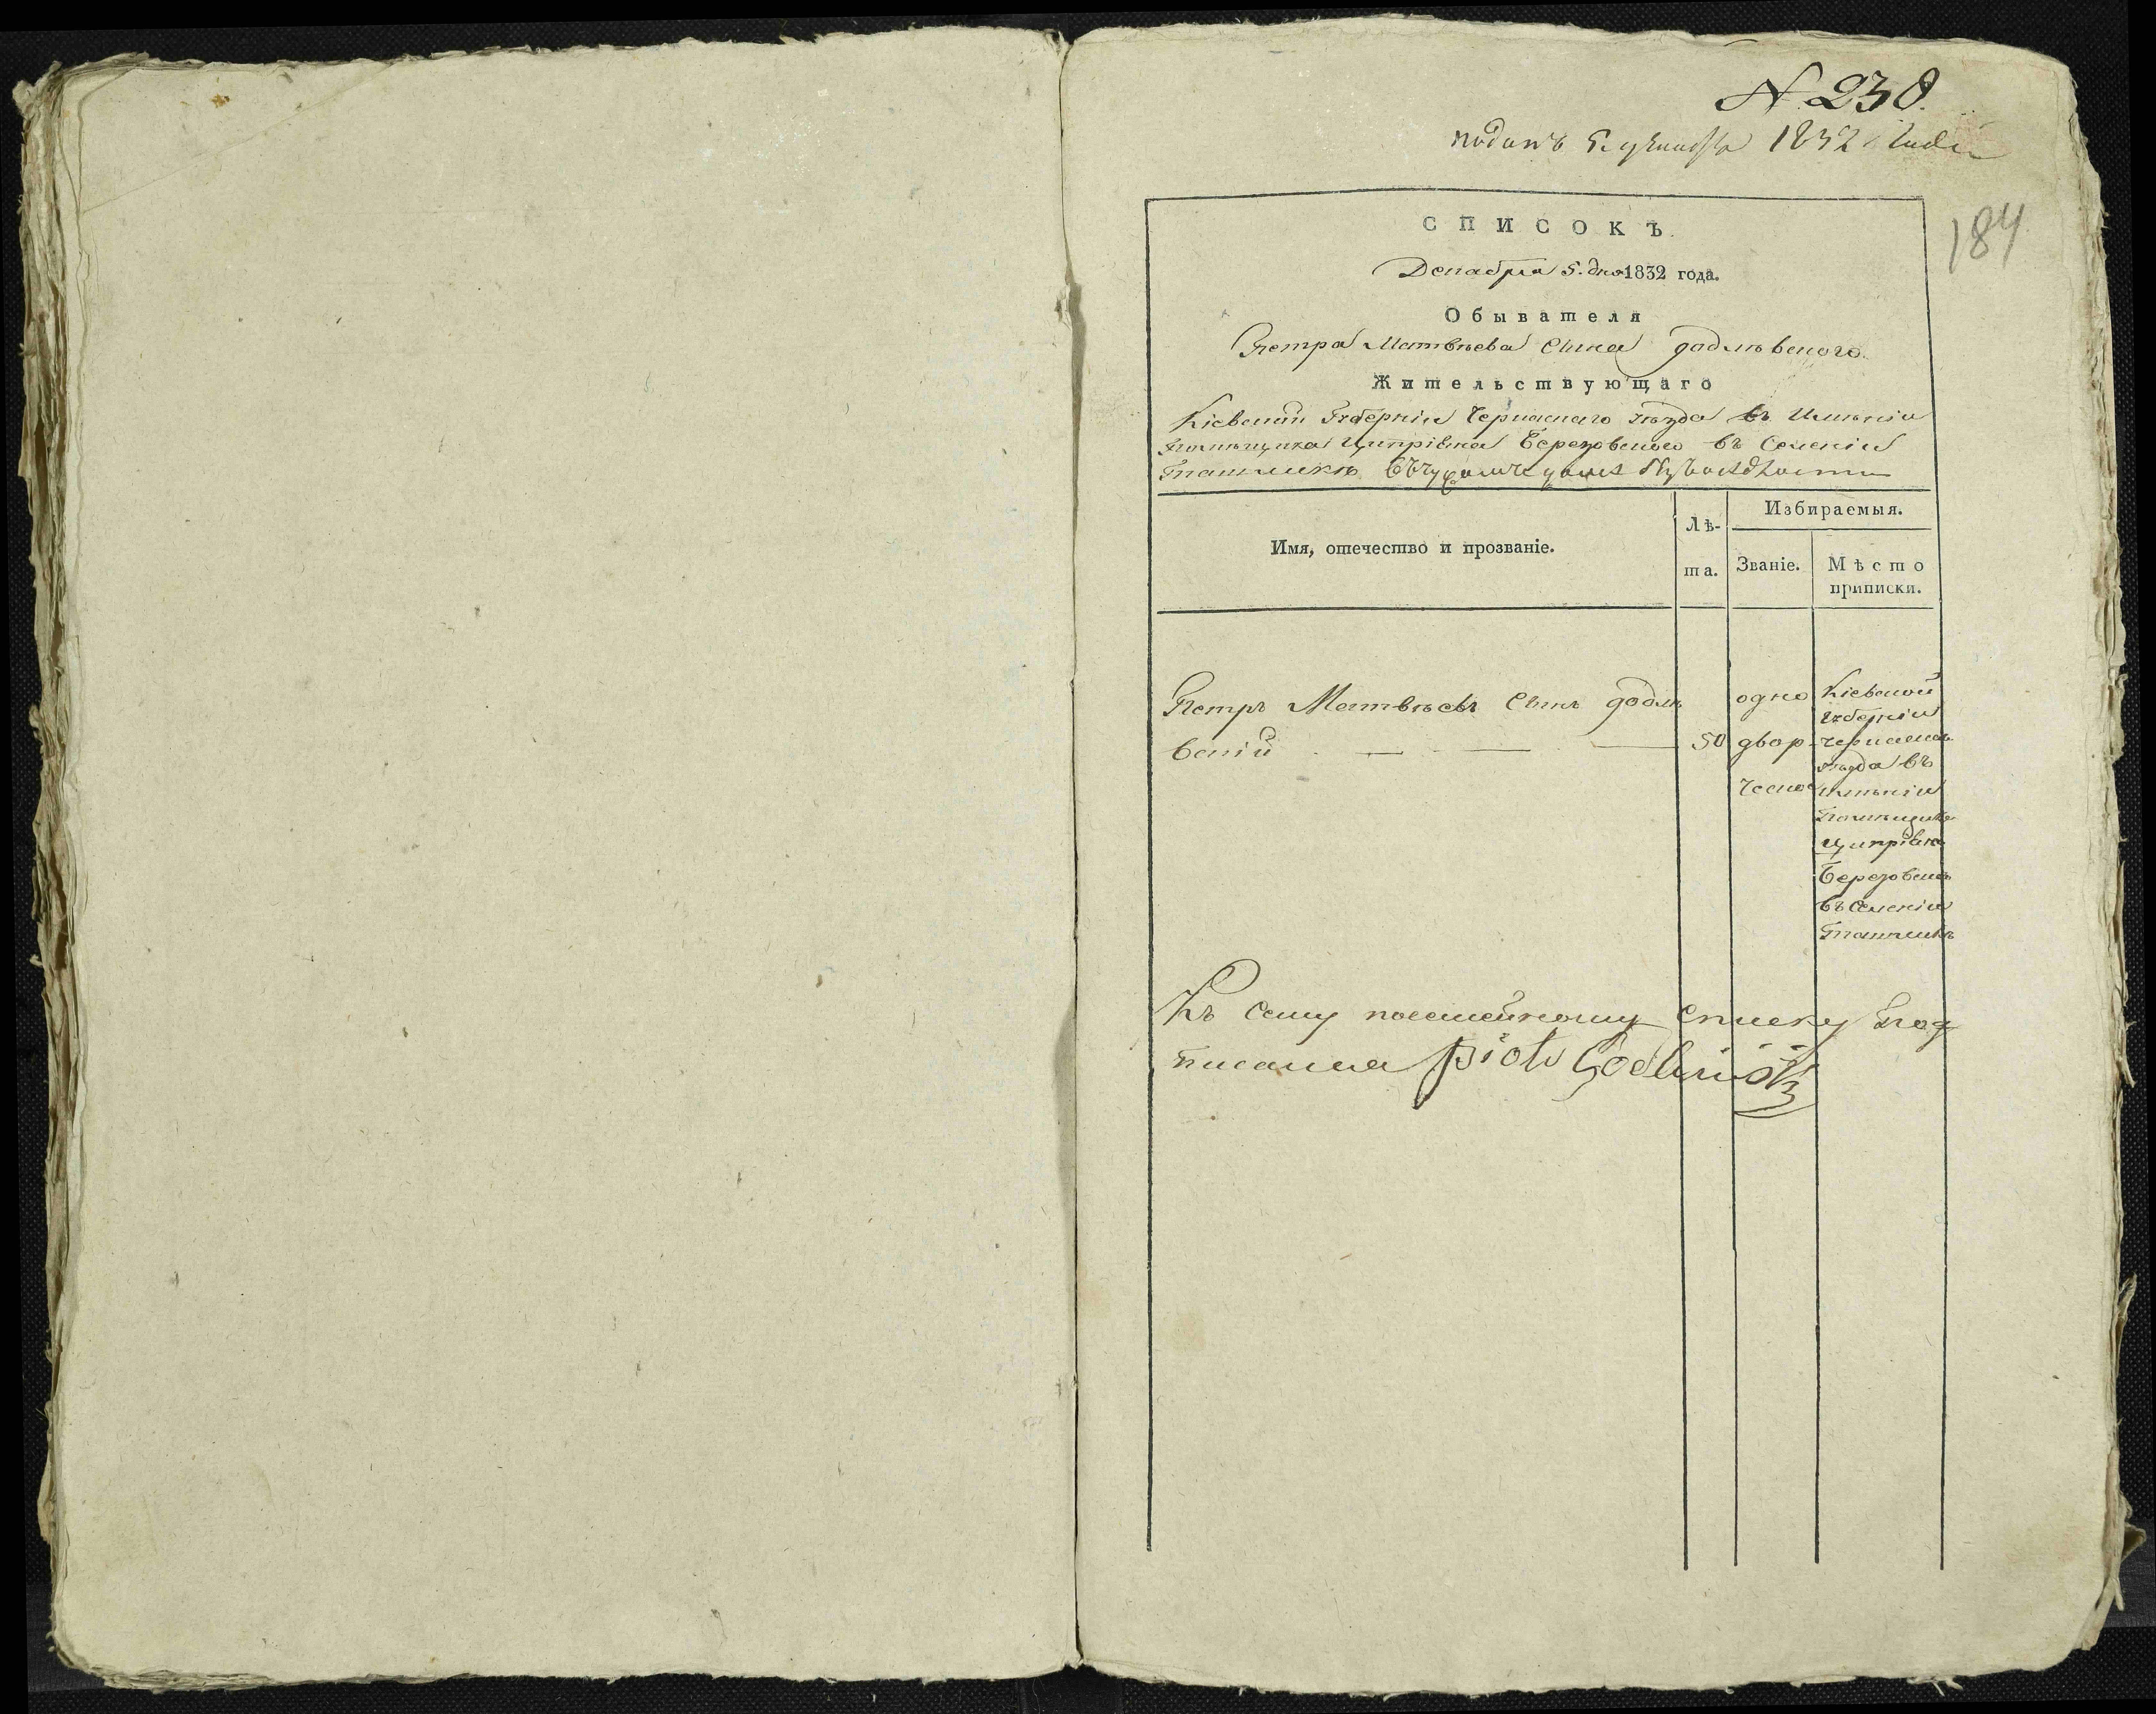 N. 238.
поданъ 5. 1832 года
184
СПИСОКЪ
Декабря 5. дня 1832 года.
Обывателя
Петра Матвѣева Сына Годлѣвского.
Жительствующаго
Кіевской Губерніи Черкаскаго уѣзда въ Имѣніи
Помѣщика Ципріяна Березовского въ Селеніи
Ташлыкѣ
Имя, отечество и прозваніе.
Лѣ-
та.
Избираемыя.
Званіе.
Мѣсто
приписки.
Петръ Матвѣевъ Сынъ Годлѣ
вскій
50
одно
двор
ческое
Кіевской
Губерніи
Черкаскаго
уѣзда въ
имѣніи
Помѣщика
Ципріяна
Березовского
въ Селеніи
Ташлыкѣ
Къ Сему посемейному списку Под
писался Piotr Godlewski